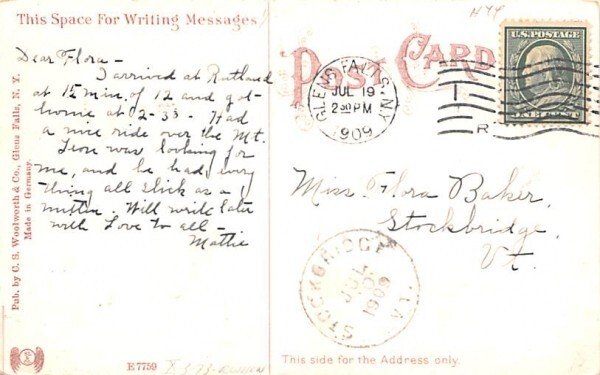 This Space For Writing Messages
Dear Flora -
I arrived at Rutland
at 15 min of 12 and got
home at 2-33 - Had
a nice ride over the Mt.
Leon was looking for
me, and he had every
thing all slick as a
mitten. Will write later
with Love to all -
Mattie
Pub. by C. S. Woolworth & Co., Glens Falls, N. Y.
Made in Germany.
E 7759
POST CARD
GLENS FALLS, N.Y.
JUL 19
2 30 PM
1909
R
U.S. POSTAGE
ONE CENT
Miss Flora Baker,
Stockbridge,
Vt.
STOCKBRIDGE
JUL
1909
This side for the Address only.